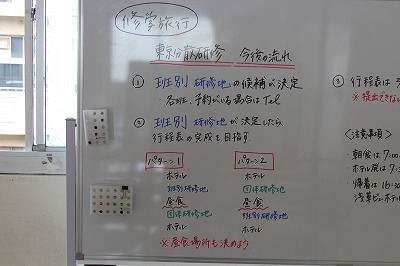 修学旅行
東京分散研修 今後の流れ
① 班別研修地の候補が決定
・各班、予約がいる場合はTel
② 班別研修地が決定したら、
行程表の完成を目指す
パターン1
ホテル
班別研修地
昼食
団体研修地
ホテル
パターン2
ホテル
団体研修地
昼食
班別研修地
ホテル
※昼食場所も決めよう
③ 行程表は
※提出できない
<注意事項>
・朝食は7:00
ホテル展は7:
・帰着は16:30
浅草ビューホテル